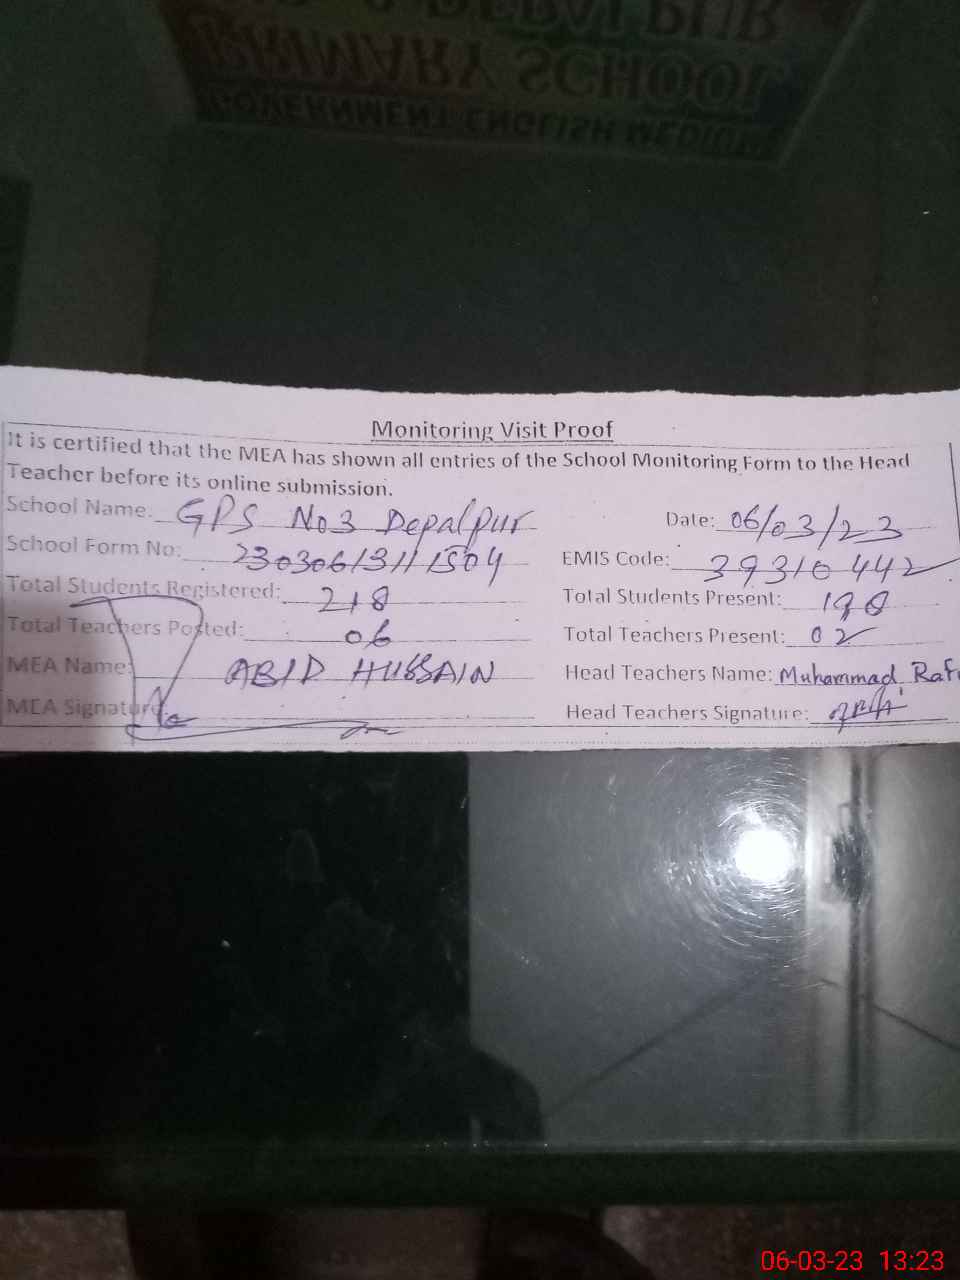 GOVERNMENT ENGLISH MEDIUM
PRIMARY SCHOOL
DEPALPUR
Monitoring Visit Proof
It is certified that the MEA has shown all entries of the School Monitoring Form to the Head
Teacher before its online submission.
School Name: GPS No 3 Depalpur Date: 06/03/23
School Form No: 23030613111504 EMIS Code: 39310442
Total Students Registered: 218 Total Students Present: 198
Total Teachers Posted: 06 Total Teachers Present: 02
MEA Name: ABID HUSSAIN Head Teachers Name: Muhammad
MEA Signature: Head Teachers Signature:
06-03-23 13:23